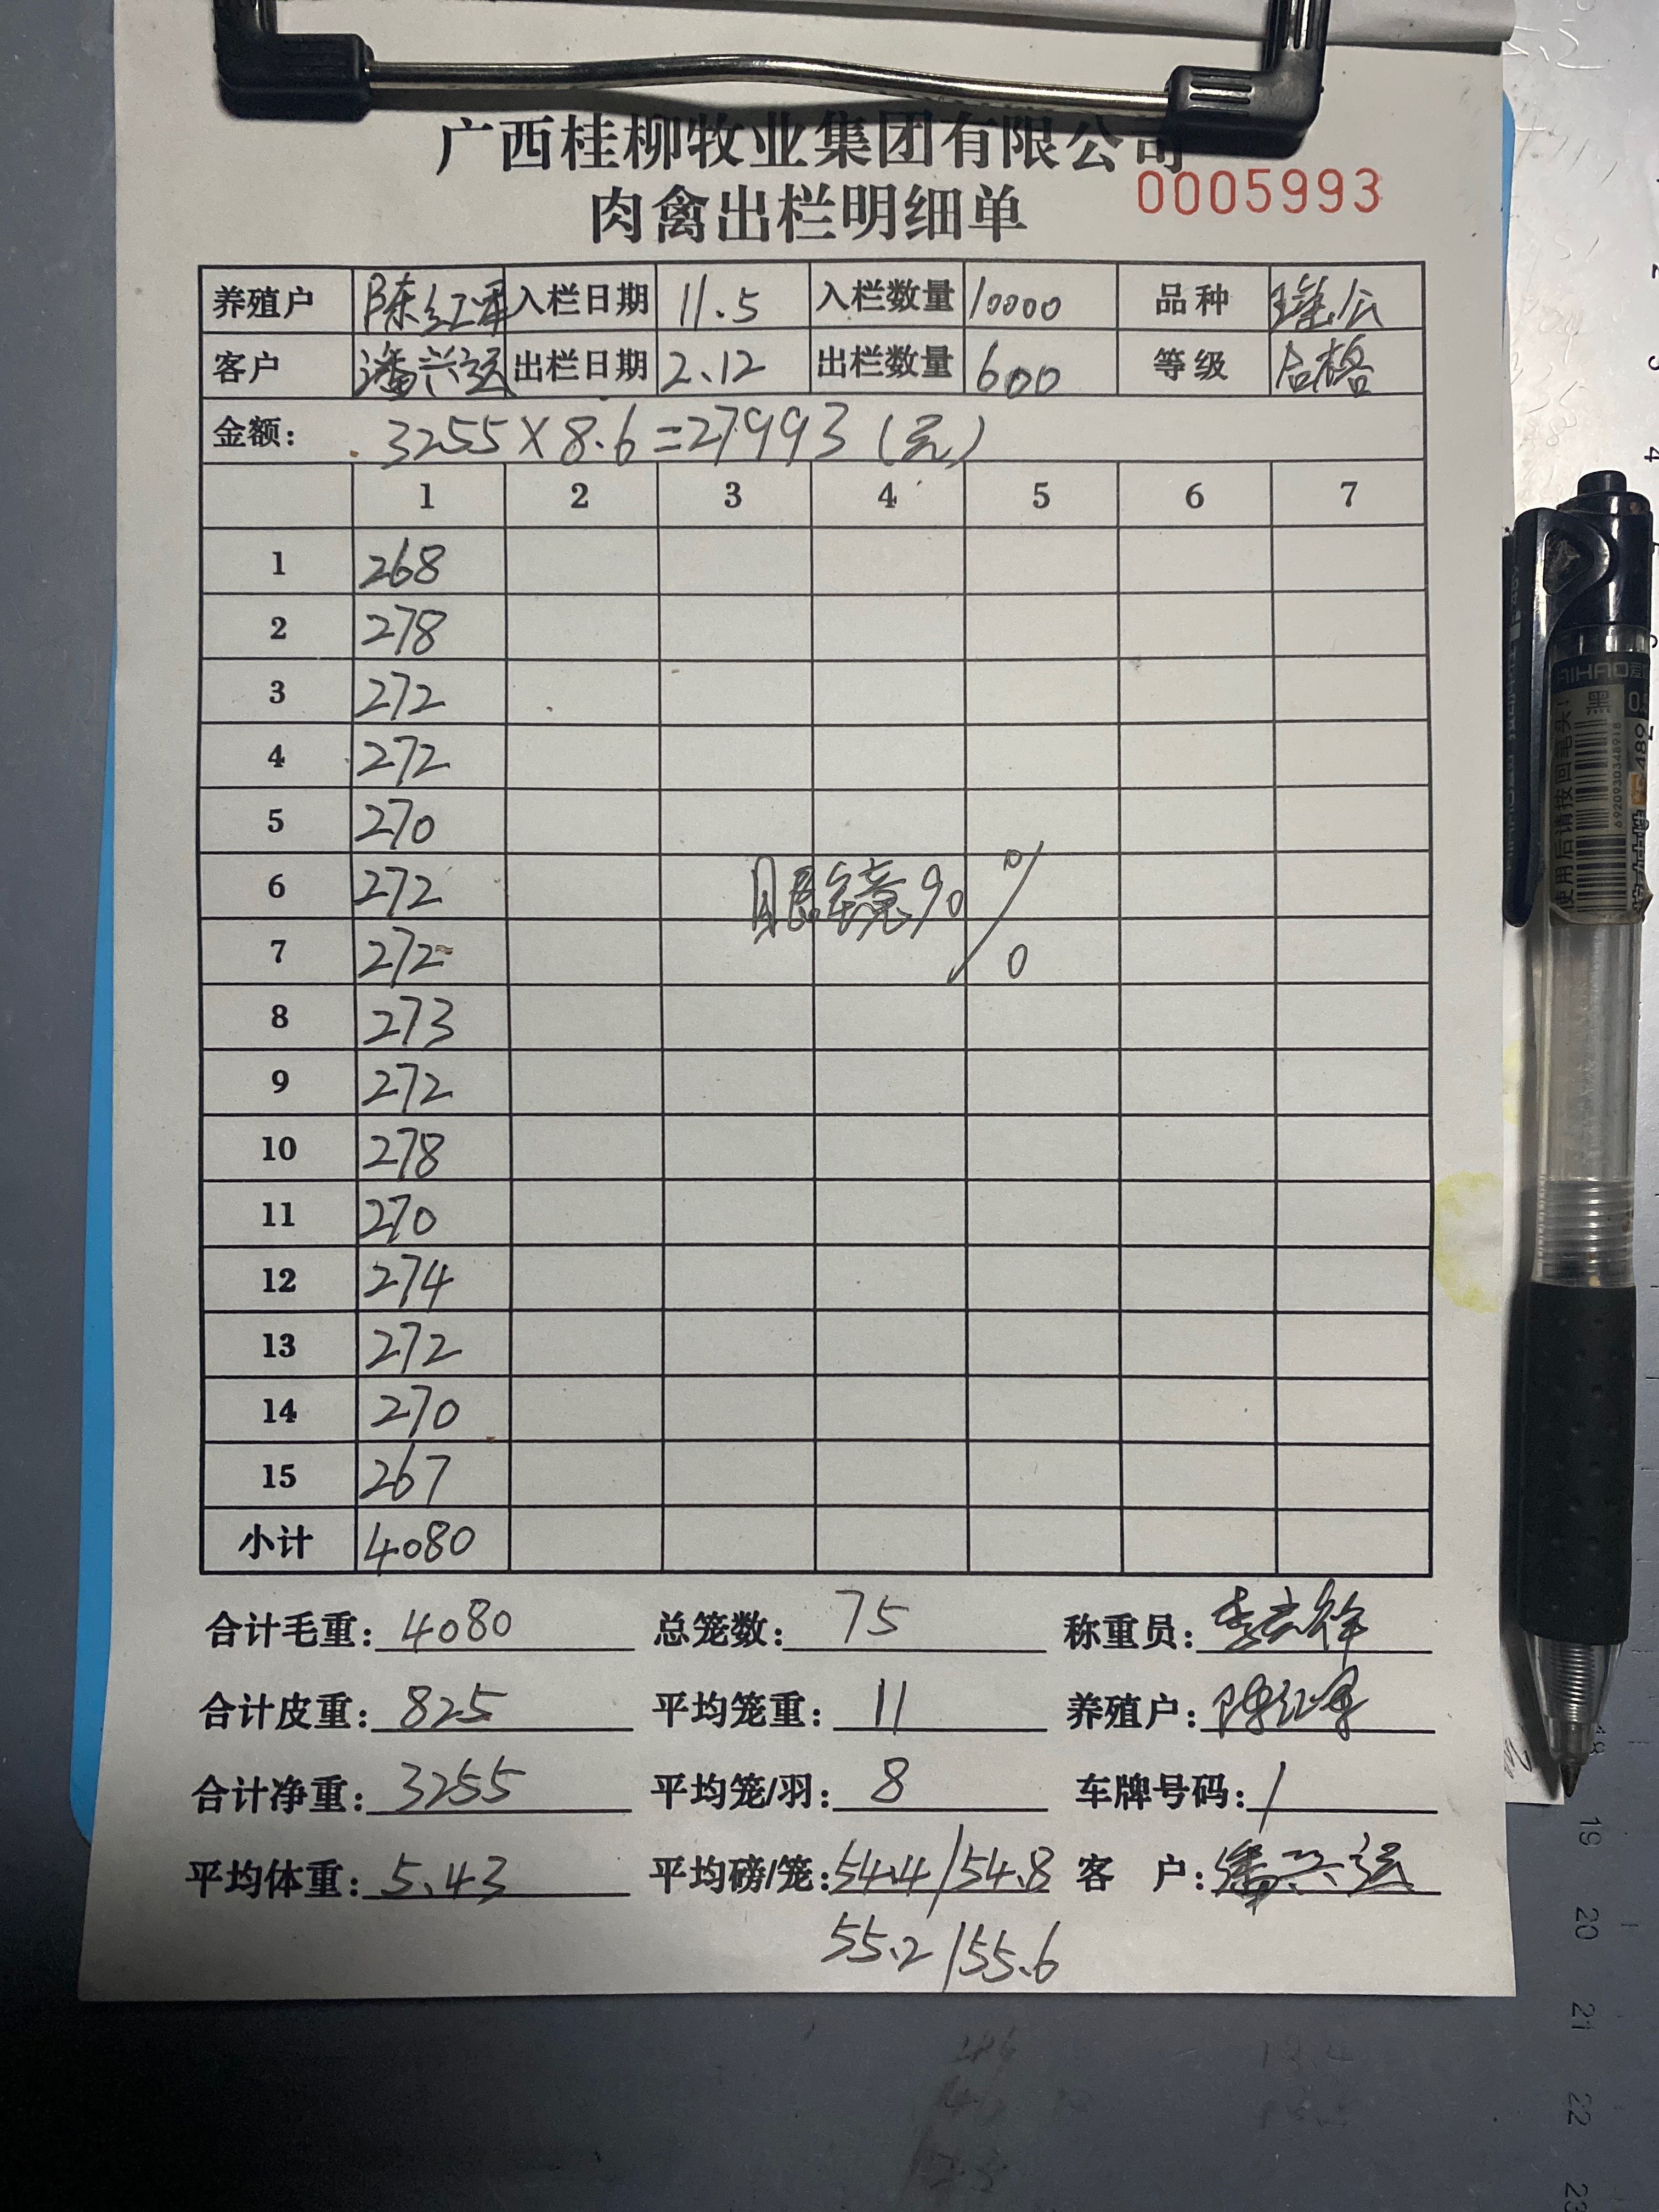 广西桂柳牧业集团有限公司
肉禽出栏明细单 0005993
养殖户 陈红军 入栏日期 11.5 入栏数量 10000 品种 瑶公
客户 潘兴运 出栏日期 2.12 出栏数量 600 等级 合格
金额: 3255×8.6=27993(元)
1 2 3 4 5 6 7
1 268
2 278
3 272
4 272
5 270
6 272 眼镜90%
7 272
8 273
9 272
10 278
11 270
12 274
13 272
14 270
15 267
小计 4080
合计毛重: 4080 总笼数: 75 称重员:
合计皮重: 825 平均笼重: 11 养殖户: 陈红军
合计净重: 3255 平均笼/羽: 8 车牌号码: /
平均体重: 5.43 平均磅/笼: 54.4/54.8 客 户: 潘兴运
55.2/55.6
AIHAO
黑
使用后请按回笔头!
6920930348918
489
19
20
21
22